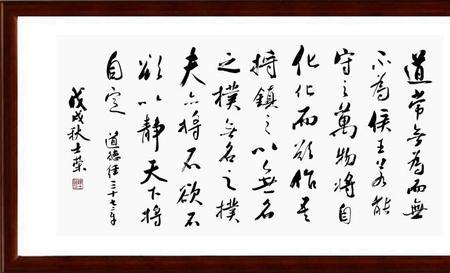 道常無為而無
不為侯王若能
守之萬物將自
化化而欲作吾
將鎮之以無名
之樸無名之樸
夫亦將不欲不
欲以靜天下將
自定 道德经三十七章
戊戌秋士荣